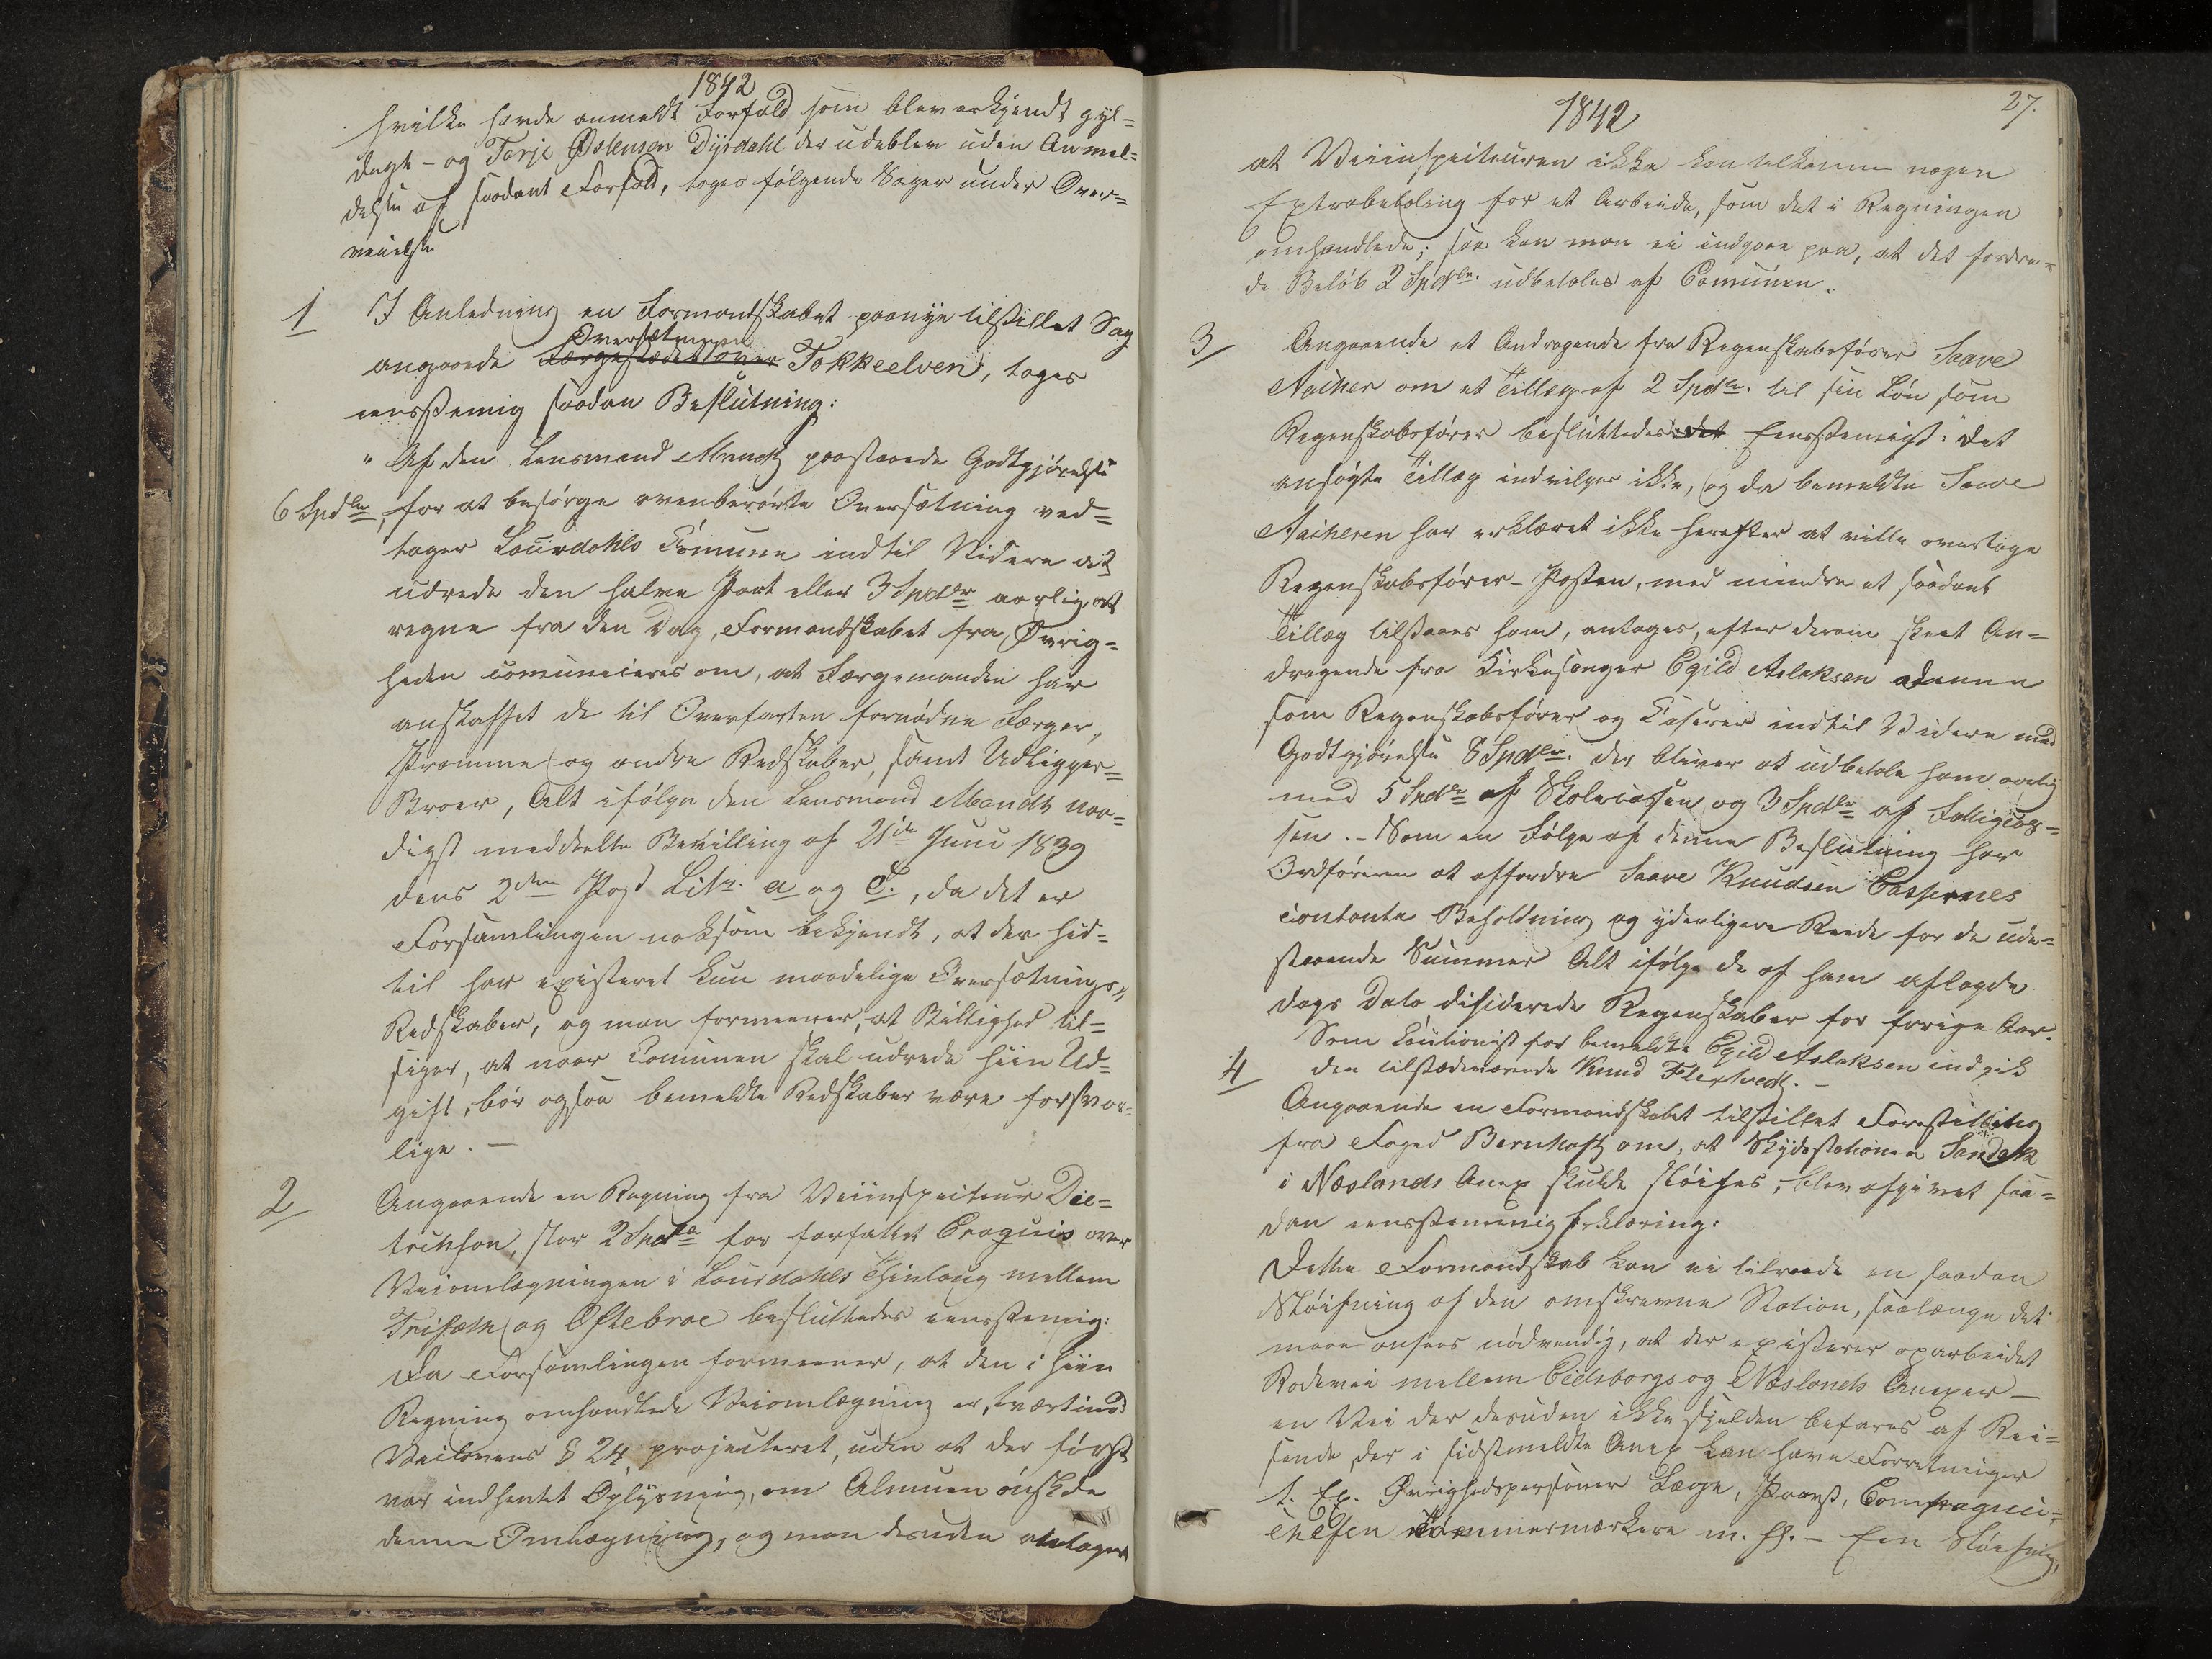 1842
hvilke havde anmeldt Forfald som blev erkjendt gyl=
digt - og Tarje Østensen Dyrdahl der udeblev uden Anmel=
delse af saadant Forfald, toges følgende Sager under Over=
veielse
1 I Anledning en Formandskabet paanye tilstillet Sag
Oversætningen
angaaende Færgestædet over Tokkeelven, toges
eensstemig saadan Beslutning:
" Af den Lensmand Mandt paastaaede Godtgjørelse
6 Spdlr, for at besørge ovenberørte Oversætning ved=
tager Laurdahls Comune indtil Videre at
udrede den halve Part eller 3 Spdlr aarlig, at
regne fra den Dag, Formandskabet fra Øvrig=
heden comuniceres om, at Færgemanden har
anskaffet de til Overfarten fornødne Færger,
Pramme og andre Redskaber, samt Udligger=
Broer, Alt ifølge den Lensmand Mandt naa=
digst meddeelte Bevilling af 21de Juni 1839
dens 2den Post Litr. a og c., da det er
Forsamlingen noksom bekjendt, at der hid=
til har existeret kun maadelige Oversætnings=
Redskaber, og man formeener, at Billighed til=
siger, at naar Comunen skal udrede hiin Ud=
gift, bør ogsaa bemeldte Redskaber være forsvar=
lige. —
2 Angaaende en Regning fra Veiinspecteur Die=
trichson, stor 2 Spdlr for forfattet Croquis over
Veiomlægningen i Laurdahls Thinlaug mellem
Trisæth og Oftebroe besluttedes eensstemig:
Da Forsamlingen formeener, at den i hiin
Regning omhandlede Veiomlægning er, tvertimod
Veilovens § 24 projecteret, uden at der først
var indhentet Oplysning, om Almuen ønskede
denne Omlægning, og man desuden antager
1842
27.
at Veiinspecteuren ikke kan tilkomme nogen
Extrabetaling for et Arbeide, som det i Regningen
omhandlede; saa kan man ei indgaae paa, at det fordre=
de Beløb 2 Spdlr. udbetales af Comunen.
3 Angaaende et Andragende fra Regenskabsfører Saave
om et Tillæg af 2 Spdlr. til sin Løn som
Regenskabsfører besluttedes det Eensstemigt: Det
ansøgte Tillæg indvilges ikke, og da bemeldte Saave
har erklæret ikke herefter at ville overtage
Regenskabsfører-Posten, med mindre et saadant
Tillæg tilstaaes ham, antages, efter derom skeet An=
dragende fra Kirkesanger Egild Aslaksen denne
som Regenskabsfører og Casserer indtil Videre med
Godtgjørelse 8 Spdlr. der bliver at udbetale ham aarlig
med 5 Spdlr af Skolecassen og 3 Spdlr af Fattigcas=
sen. - Som en Følge af denne Beslutning har
Ordføreren at affordre Saave Knudsen Cassernes
contante Beholdning og yderligere Rede for de ude=
staaende Summer Alt ifølge de af ham aflagde
Dags Dato disiderede Regenskaber for forige Aar.
Som Cautionist for bemeldte Egild Aslaksen indgik
den tilstædeværende Knud
4 Angaaende en Formandskabet tilstillet Forestilling
fra Foged Bernhoft om, at Skydsstationen Sandok
i Næslands Anex skulde sløifes, blev afgivet saa=
dan eensstemmig Erklæring:
Dette Formandskab kan ei tilraade en saadan
Sløifning af den omskrevne Station, saalænge det
maae ansees nødvendig, at der existerer oparbeidet
Rodevei mellem Eidsborgs og Næslands Anexer —
en Vei der desuden ikke sjelden befares af Rei=
sende, der i sidstmeldte Anex kan have Forretninger
t. Ex. Øvrighedspersoner Læge, Præst, Compagnie=
chefen Tømmermærkere m. fl. - Een Sløifning,